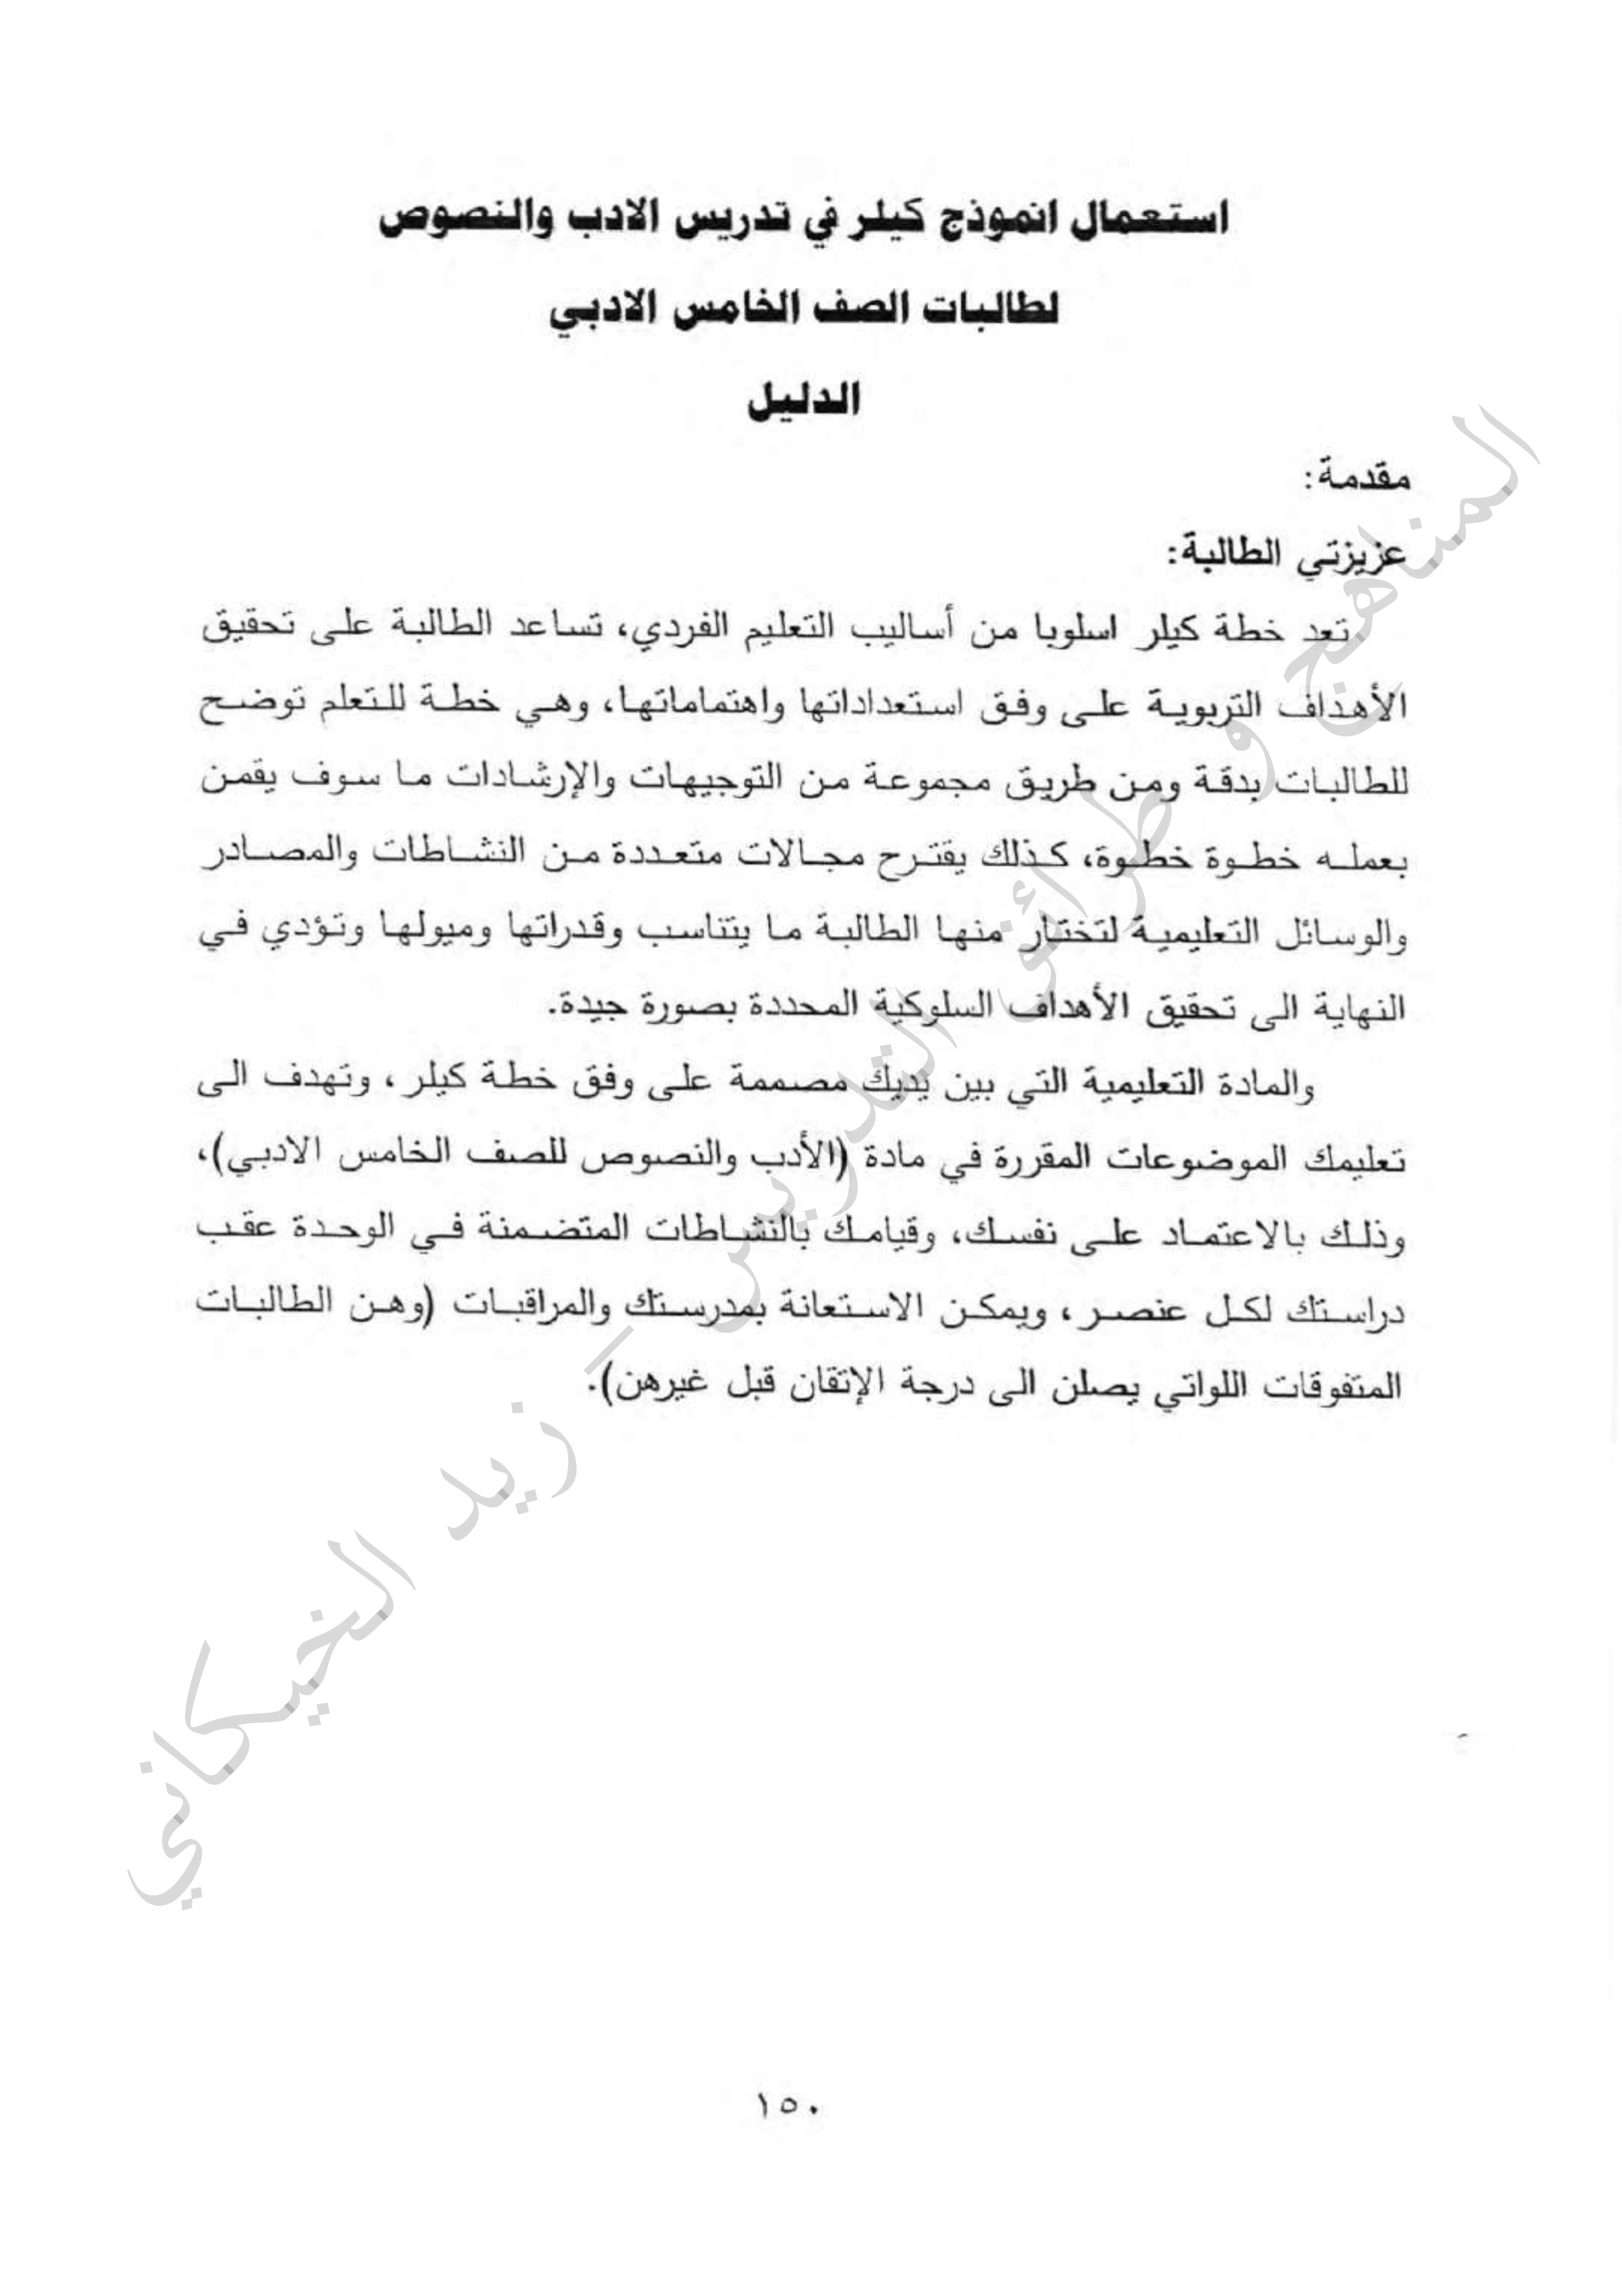 استعمال انموذج كيلر في تدريس الادب والنصوص
لطالبات الصف الخامس الادبي
الدليل
مقدمة:
عزيزتي الطالبة:
تعد خطة كيلر اسلوبا من أساليب التعليم الفردي، تساعد الطالبة على تحقيق
الأهداف التربوية على وفق استعداداتها واهتماماتها، وهي خطة للتعلم توضح
للطالبات بدقة ومن طريق مجموعة من التوجيهات والإرشادات ما سوف يقمن
بعمله خطوة خطوة، كذلك يقترح مجالات متعددة من النشاطات والمصادر
والوسائل التعليمية لتختار منها الطالبة ما يتناسب وقدراتها وميولها وتؤدي في
النهاية الى تحقيق الأهداف السلوكية المحددة بصورة جيدة.
والمادة التعليمية التي بين يديك مصممة على وفق خطة كيلر ، وتهدف الى
تعليمك الموضوعات المقررة في مادة (الأدب والنصوص للصف الخامس الادبي)،
وذلك بالاعتماد على نفسك، وقيامك بالنشاطات المتضمنة في الوحدة عقب
دراستك لكل عنصر ، ويمكن الاستعانة بمدرستك والمراقبات (وهن الطالبات
المتفوقات اللواتي يصلن الى درجة الإتقان قبل غيرهن).
المناهج و طرائق التدريس – زيد الخيكاني
١٥٠